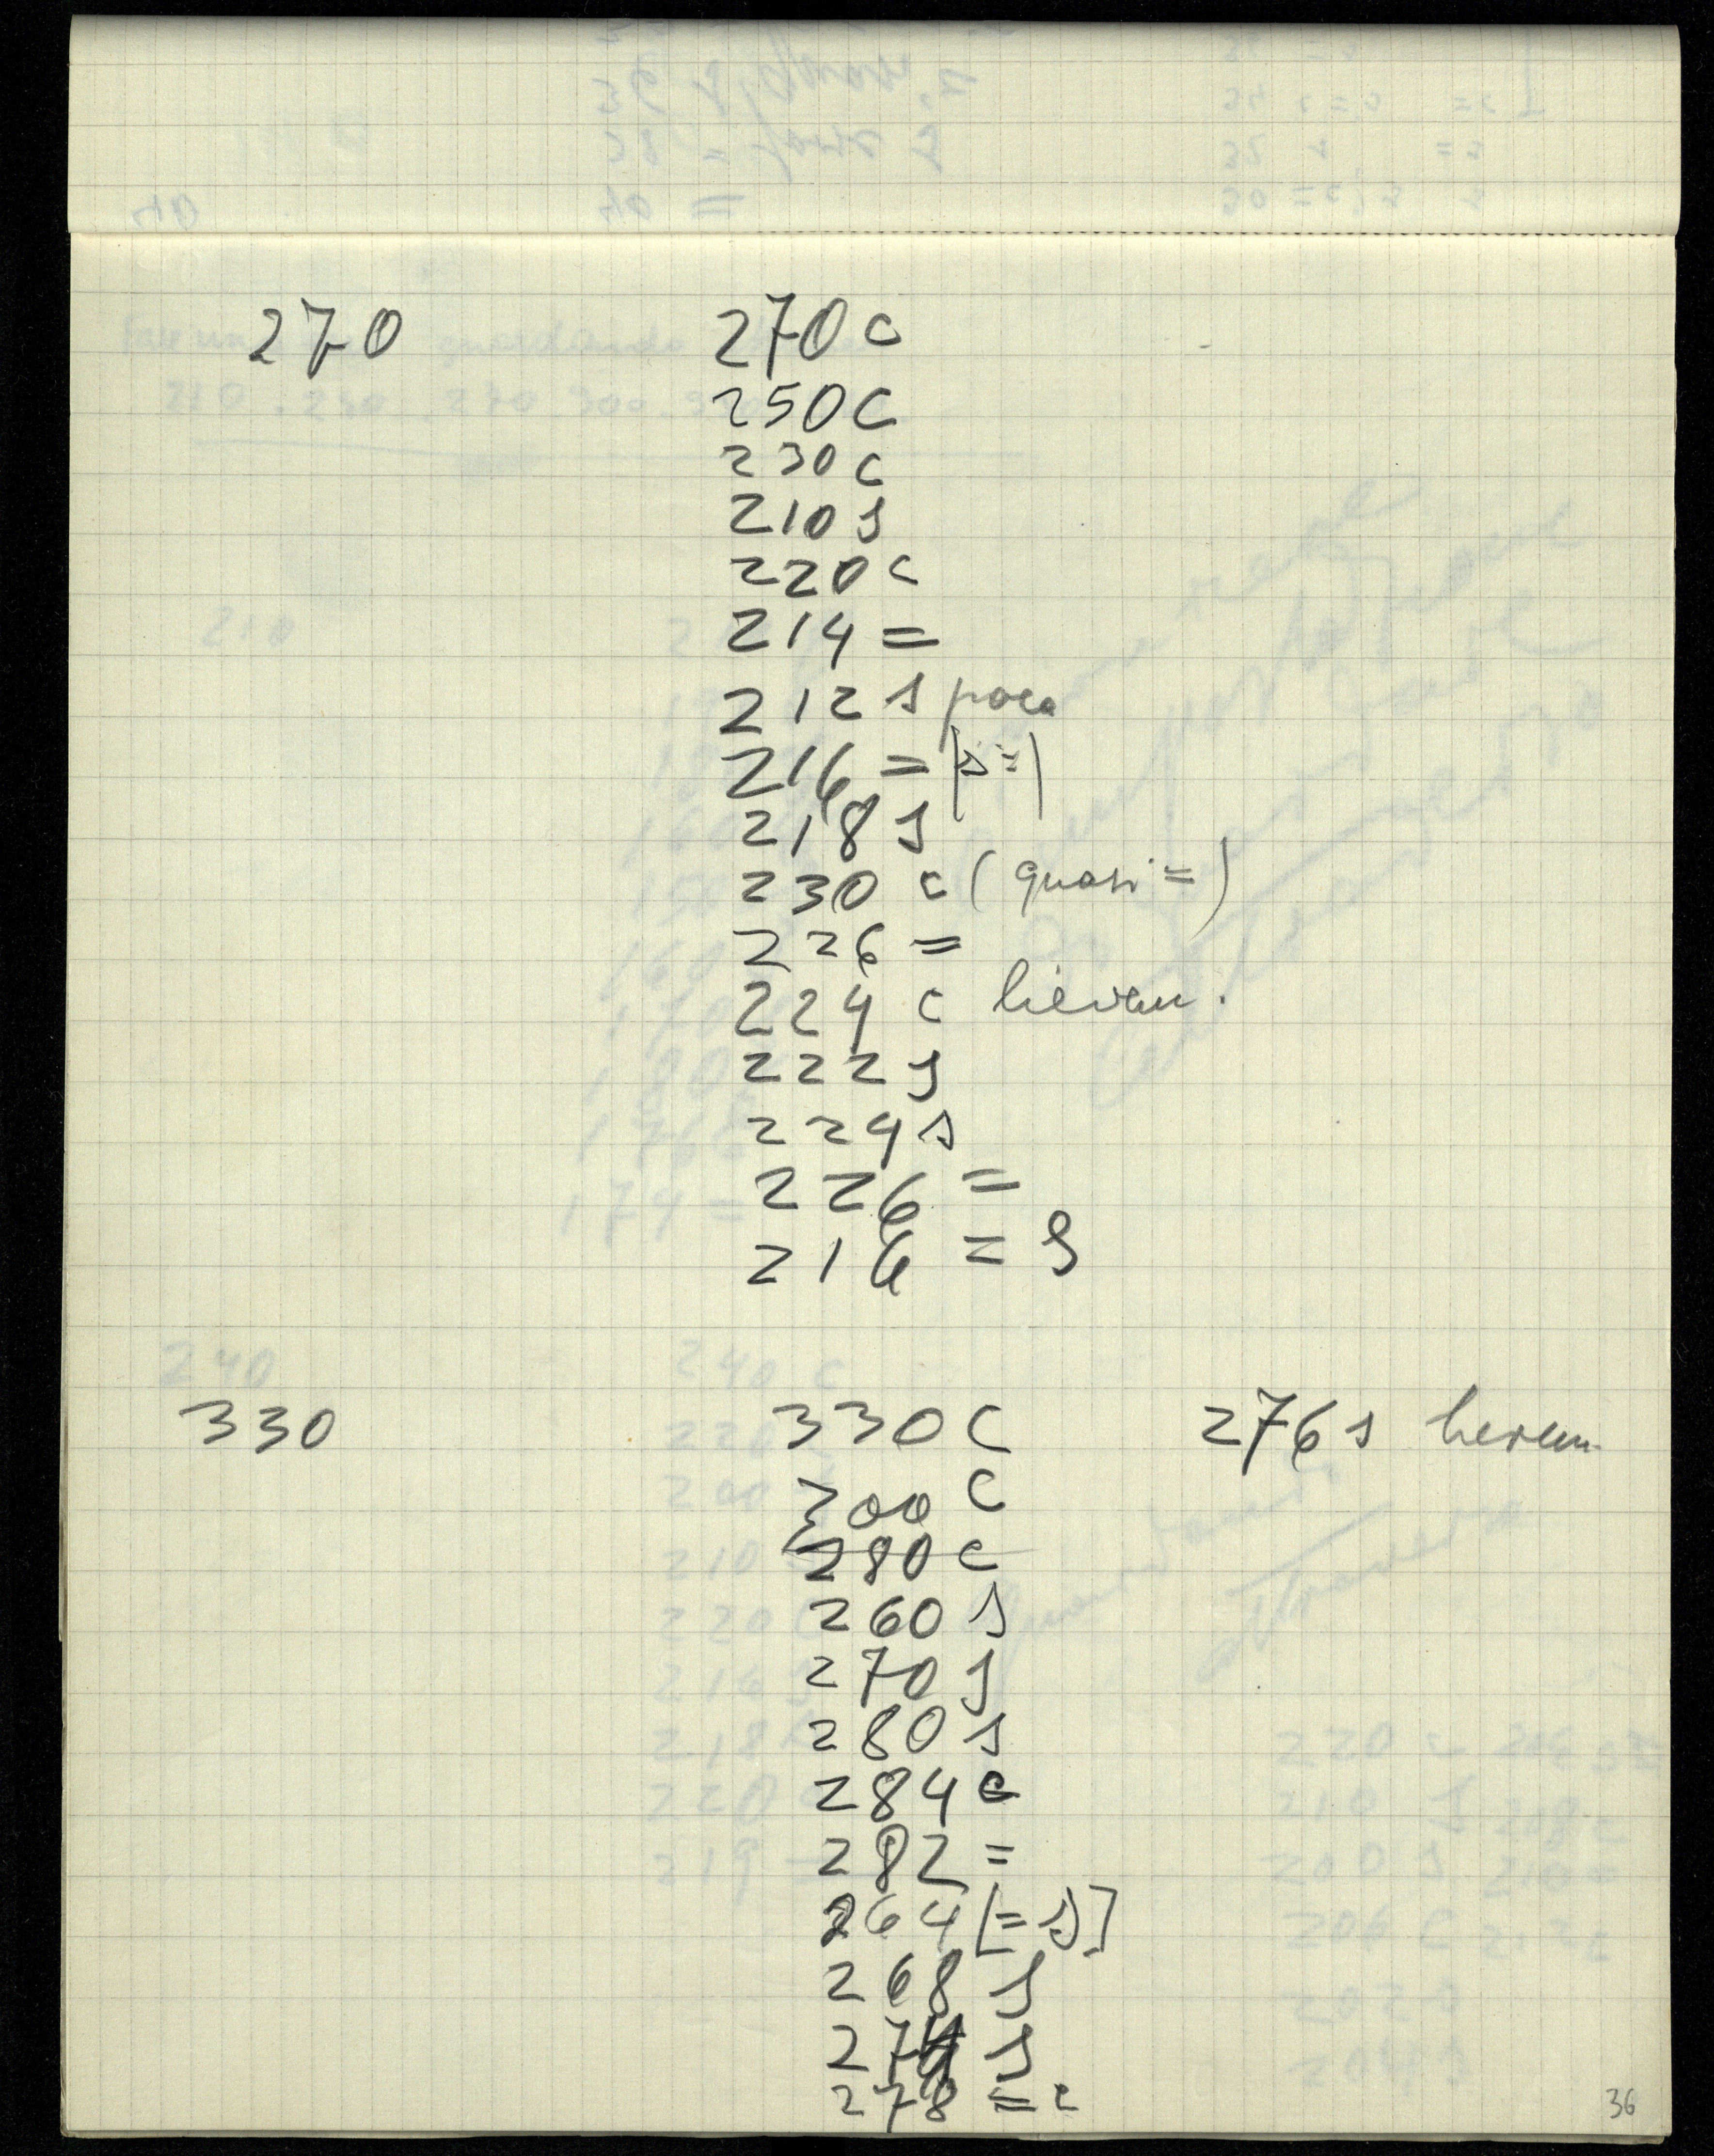 270 270 c
250 c
230 c
210 s
220 c
214 =
212 s poca
216 = |s =|
218 s
230 c (quasi =)
226 =
224 c lievem.
222 s
224 s
226 =
216 = s
330 330 c 276 s lievem.
300 c
280 c
260 s
270 s
280 s
284 c
282 =
264 [= s)]
268 s
274 s
278 = c
36